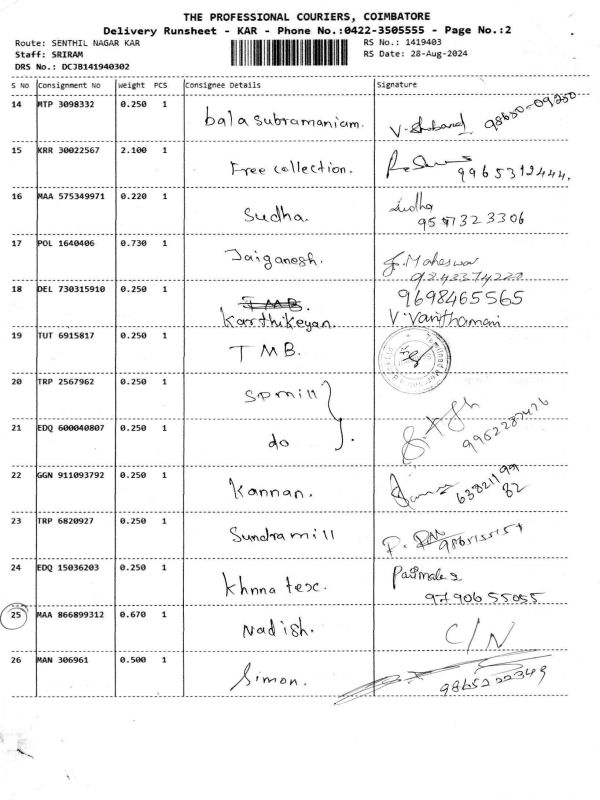 THE PROFESSIONAL COURIERS, COIMBATORE
Delivery Runsheet - KAR - Phone No.:0422-3505555 - Page No.:2
Route: SENTHIL NAGAR KAR
RS No.: 1419403
Staff: SRIRAM
RS Date: 28-Aug-2024
DRS No.: DCJB141940302
S No Consignment No Weight PCS Consignee Details Signature
14 MTP 3098332 0.250 1 balasubramaniam.
15 KRR 30022567 2.100 1 Free collection. 9965312444.
16 MAA 575349971 0.220 1 Sudha. Sudha
17 POL 1640406 0.730 1 Jaiganesh. J. Maheswar
18 DEL 730315910 0.250 1 TMB. 9698465565
Karthikeyan. V. Vanithamani
19 TUT 6915817 0.250 1 TMB.
20 TRP 2567962 0.250 1 spmill
21 EDQ 600040807 0.250 1 do
22 GGN 911093792 0.250 1 Kannan. 63821199
82
23 TRP 6820927 0.250 1 Sundramill
24 EDQ 15036203 0.250 1 khnna tex.
9790655055
25 MAA 866899312 0.670 1 Nadish. C/N
26 MAN 306961 0.500 1 Simon. 9865222349